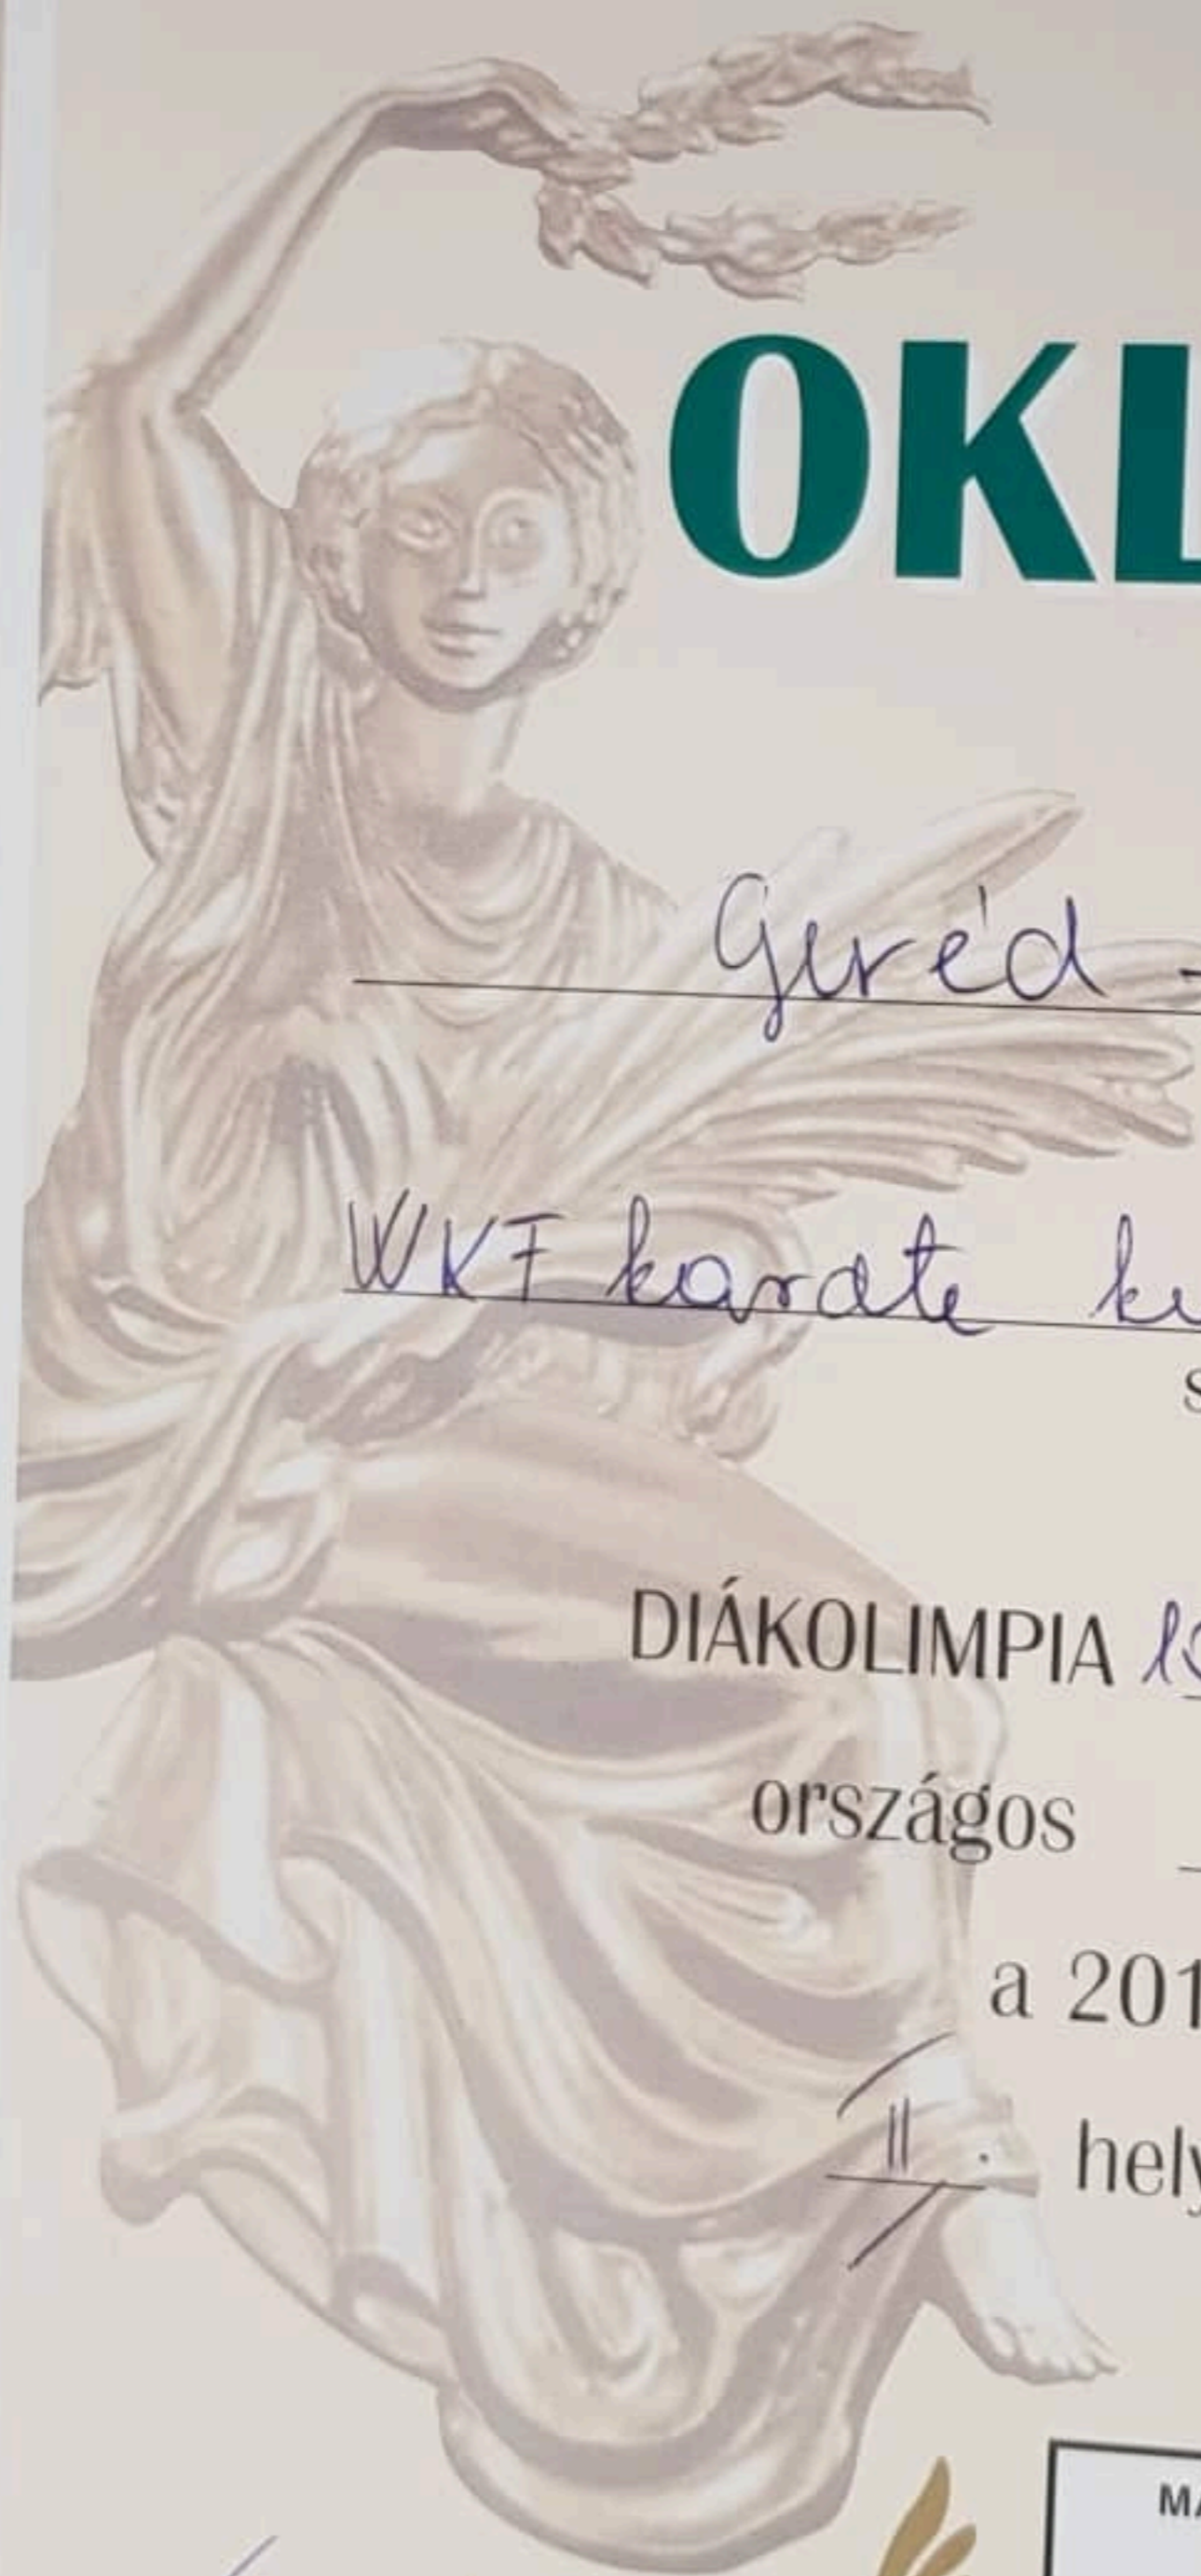 OKL
Geréd -
WKF karate ku
s
DIÁKOLIMPIA
országos
a 201
II. hely
MA